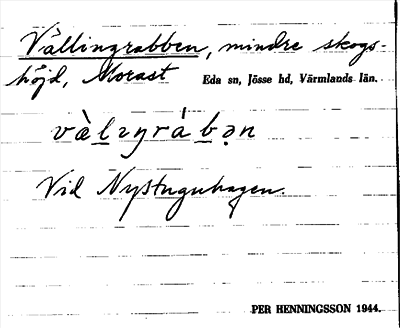 Vällingrabben, mindre skogs-
höjd, Morast Eda sn, Jösse hd, Värmlands län.
và l ıɡrá b ə n
Vid Nystuguhagen.
PER HENNINGSSON 1944.